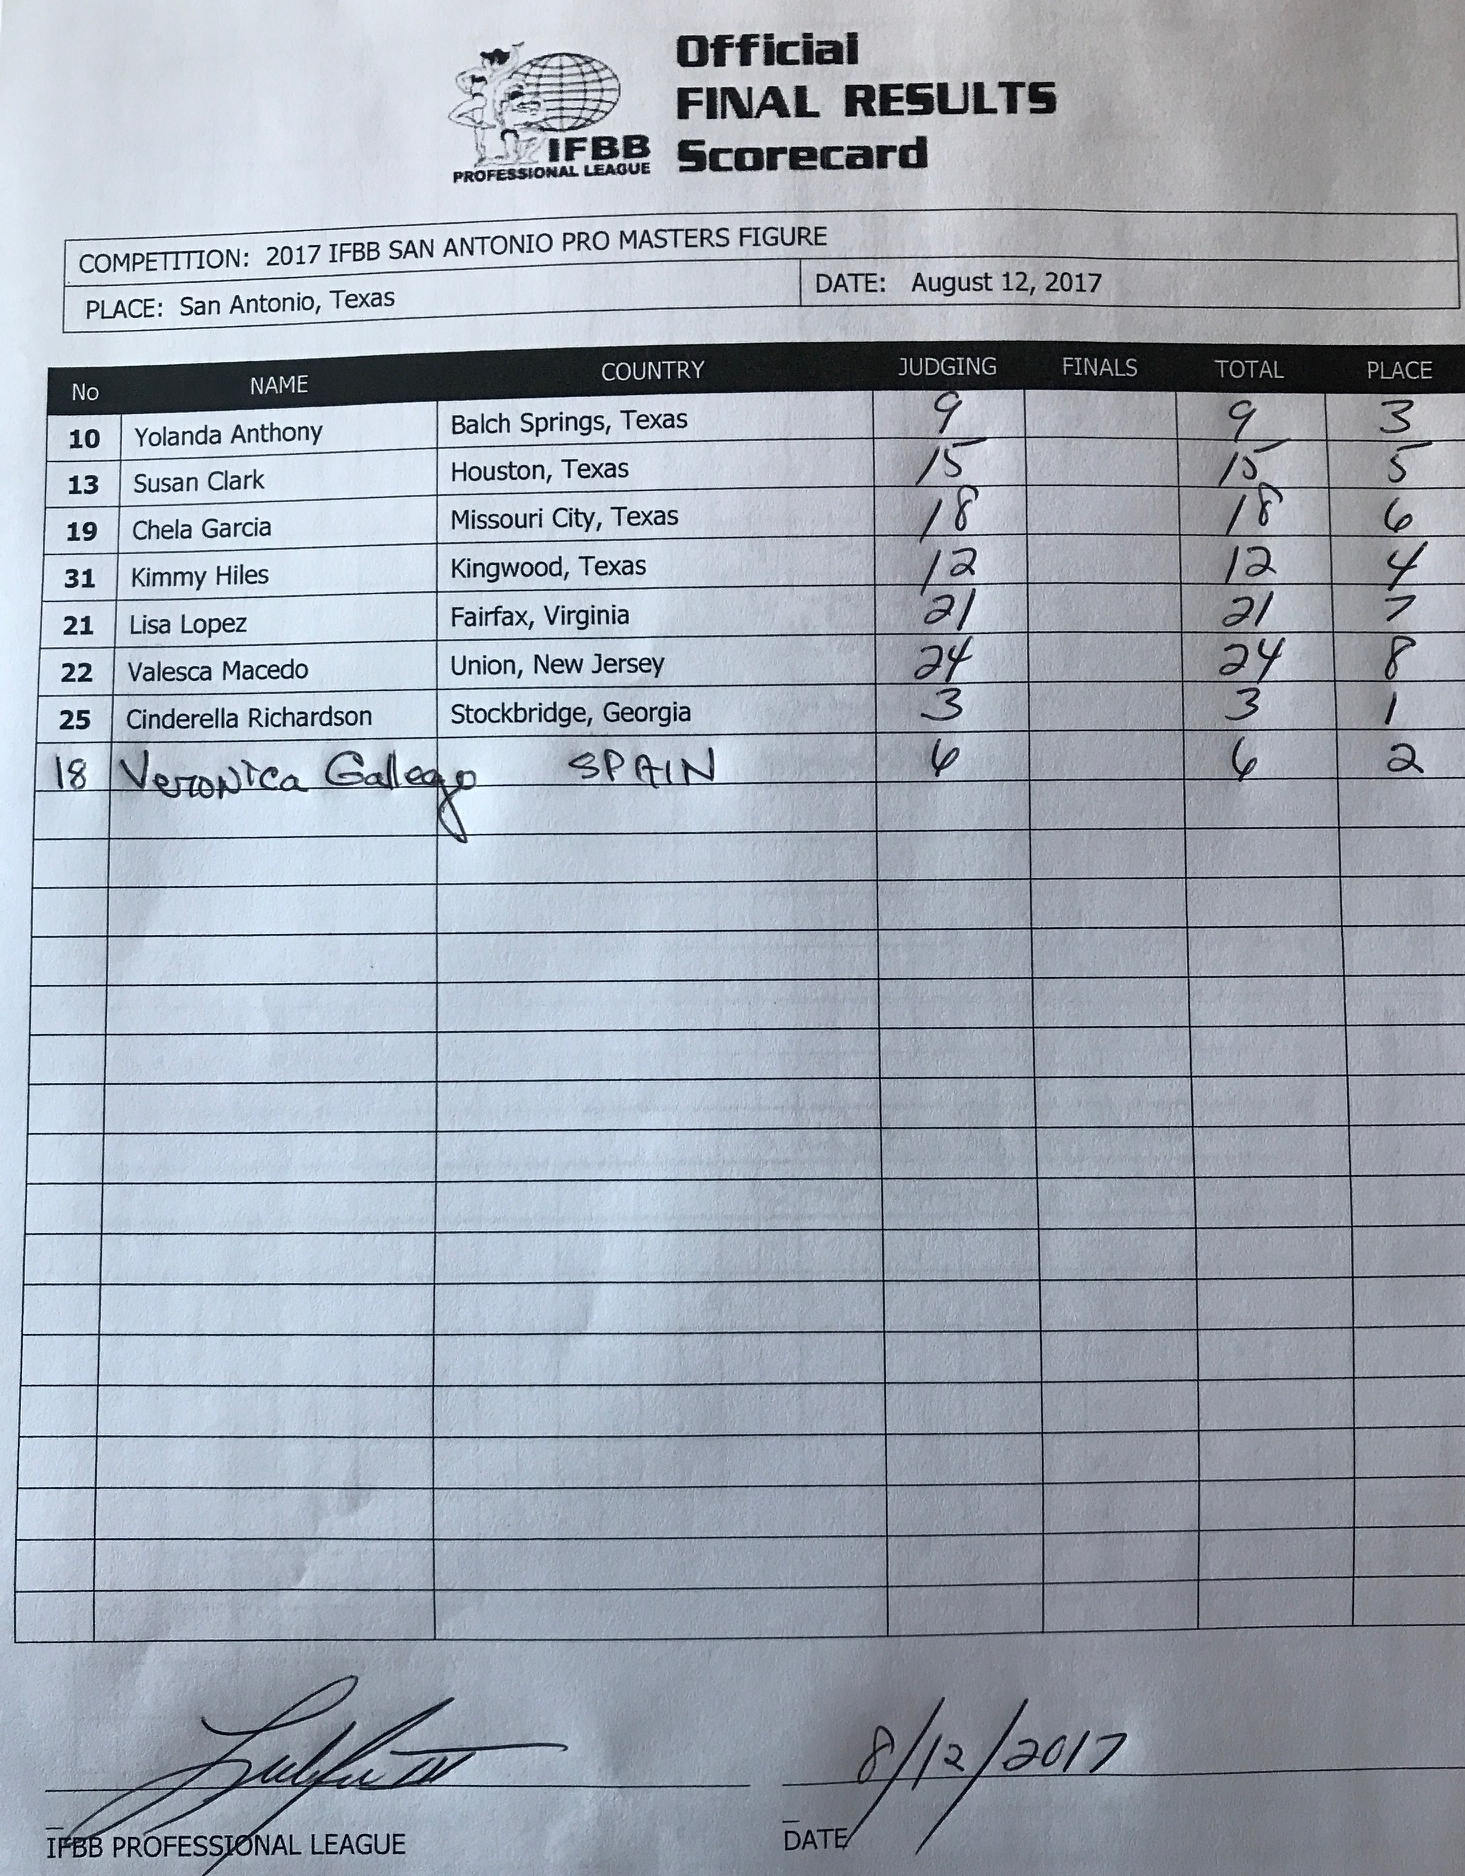 Official
FINAL RESULTS
Scorecard
IFBB
PROFESSIONAL LEAGUE
COMPETITION: 2017 IFBB SAN ANTONIO PRO MASTERS FIGURE
PLACE: San Antonio, Texas DATE: August 12, 2017
No NAME COUNTRY JUDGING FINALS TOTAL PLACE
10 Yolanda Anthony Balch Springs, Texas 9 9 3
13 Susan Clark Houston, Texas 15 15 5
19 Chela Garcia Missouri City, Texas 18 18 6
31 Kimmy Hiles Kingwood, Texas 12 12 4
21 Lisa Lopez Fairfax, Virginia 21 21 7
22 Valesca Macedo Union, New Jersey 24 24 8
25 Cinderella Richardson Stockbridge, Georgia 3 3 1
18 Veronica Gallego SPAIN 6 6 2
8/12/2017
IFBB PROFESSIONAL LEAGUE DATE